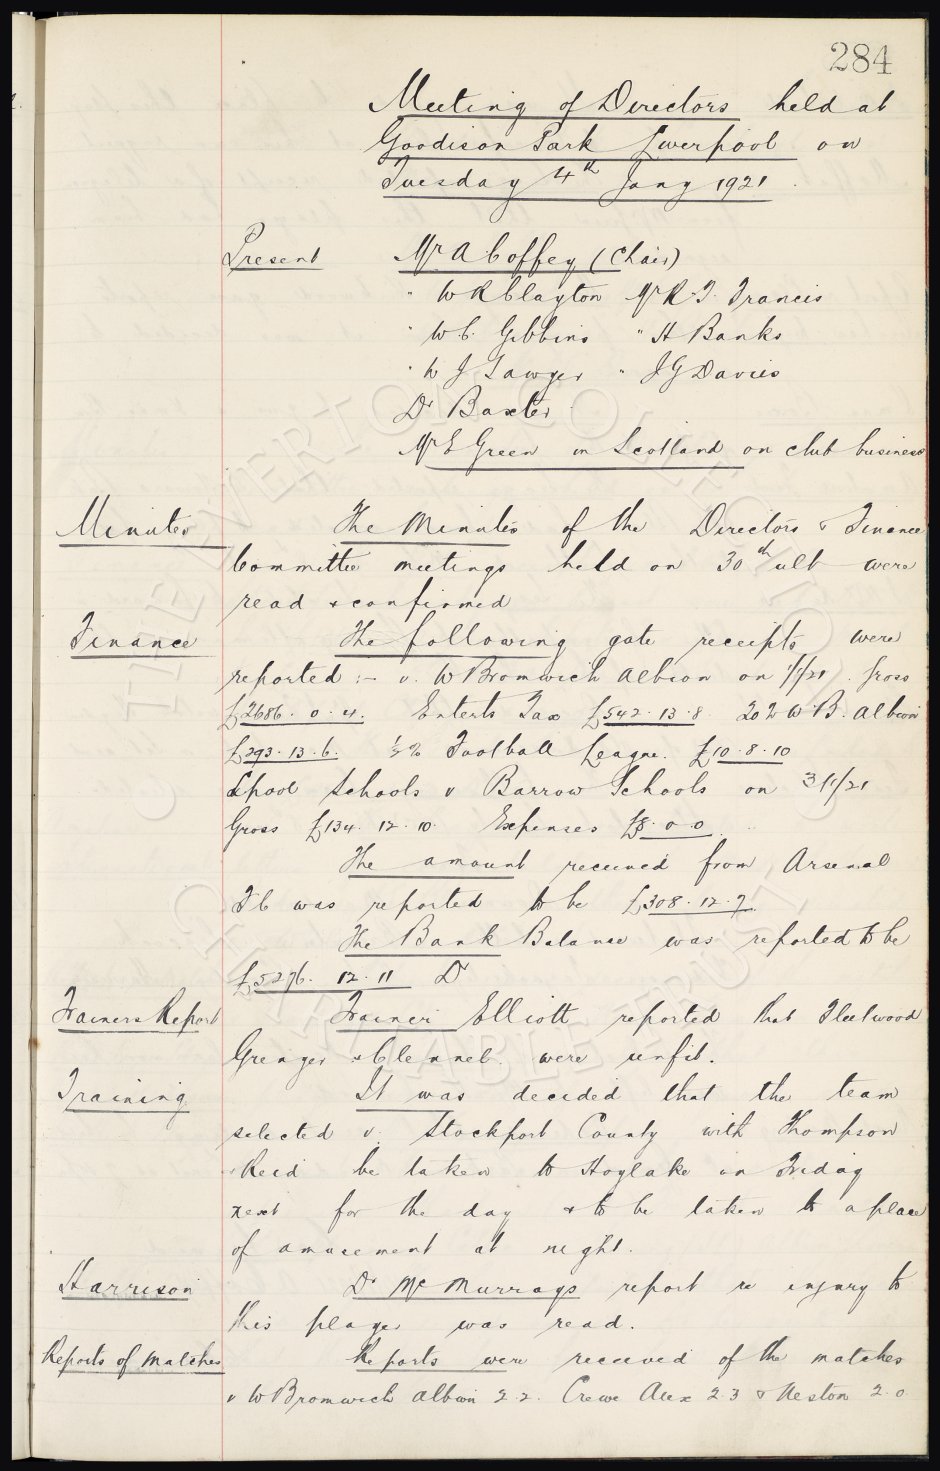 284
Meeting of Directors held at
Goodison Park Liverpool on
Tuesday 4th Jany 1921.
Present Mr A Coffey (Chair)
" W R Clayton Mr R. T. Francis
" W C. Gibbins " H Banks
" W J Sawyer " J G Davies
Dr Baxter
Mr E Green in Scotland on club business
Minutes The Minutes of the Directors & Finance
Committee meetings held on 30th ult were
read & confirmed
Finance The following gate receipts were
reported :- v. W Bromwich Albion on 1/1/21. Gross
£2686. 0. 4. Enterts Tax £542. 13. 8 20% W. B. Albion
£293. 13. 6. ½% Football League. £10. 8. 10
Lpool Schools v Barrow Schools on 3/1/21
Gross £134. 12. 10. Expenses £8. 0. 0
The amount received from Arsenal
F C was reported to be £308. 12. 7.
The Bank Balance was reported to be
£5276. 12. 11 Dr
Trainers Report Trainer Elliott reported that Fleetwood
Grenyer & Clennel. were unfit.
Training It was decided that the team
selected v. Stockport County with Thompson
& Reid be taken to Hoylake on Friday
next for the day & to be taken to a place
of amusement at night.
Harrison Dr McMurrays report re injury to
this player was read.
Reports of Matches Reports were received of the matches
v W Bromwich Albion 2.2. Crewe Alex 2.3 & Neston 2.0
THE EVERTON COLLECTION
CHARITABLE TRUST